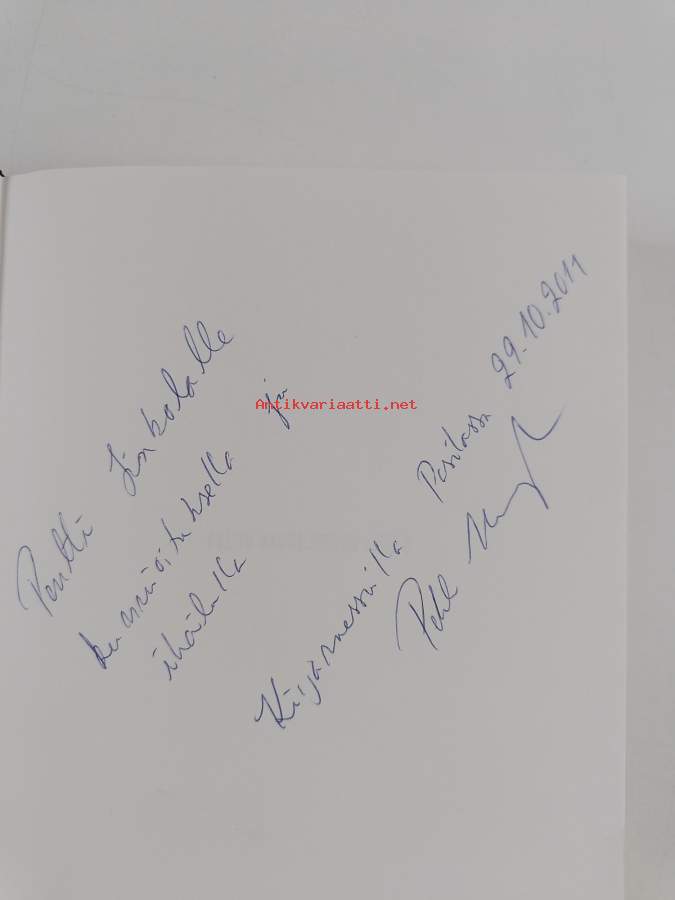 Pentti Linkolalle
kunnioituksella ja
ihailulla
Kirjamessuilla Pasilassa 29.10.2011
Antikvariaatti.net